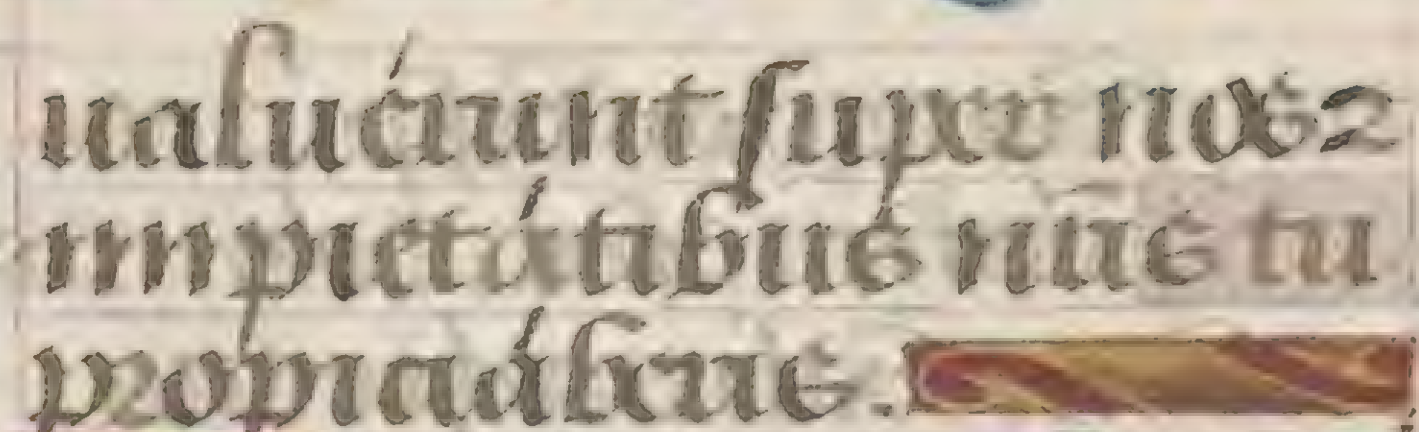 ualuérunt super nos ⁊
impietátibus nr̄is tu
propiciáberis.